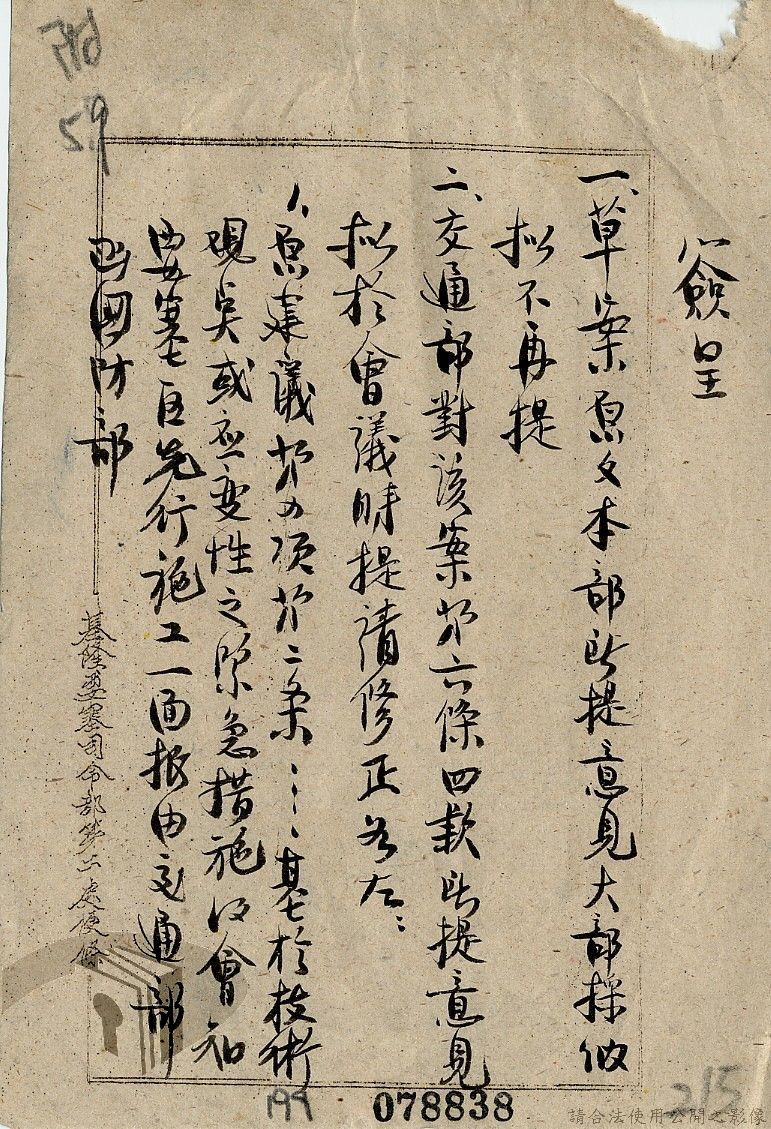 簽呈
一、草案原文本部所提意見大部採做
拟不再提
二、交通部對該案第六條四款所提意見
拟於會議時提請修正為左：
1、原建議第四項第二条……基於技術
觀點或应变性之緊急措施得會知
由要塞區先行施工一面报由交通部
迅國防部
基隆要塞司令部第二處便條
附
59
199
078838
215
請合法使用公開之影像